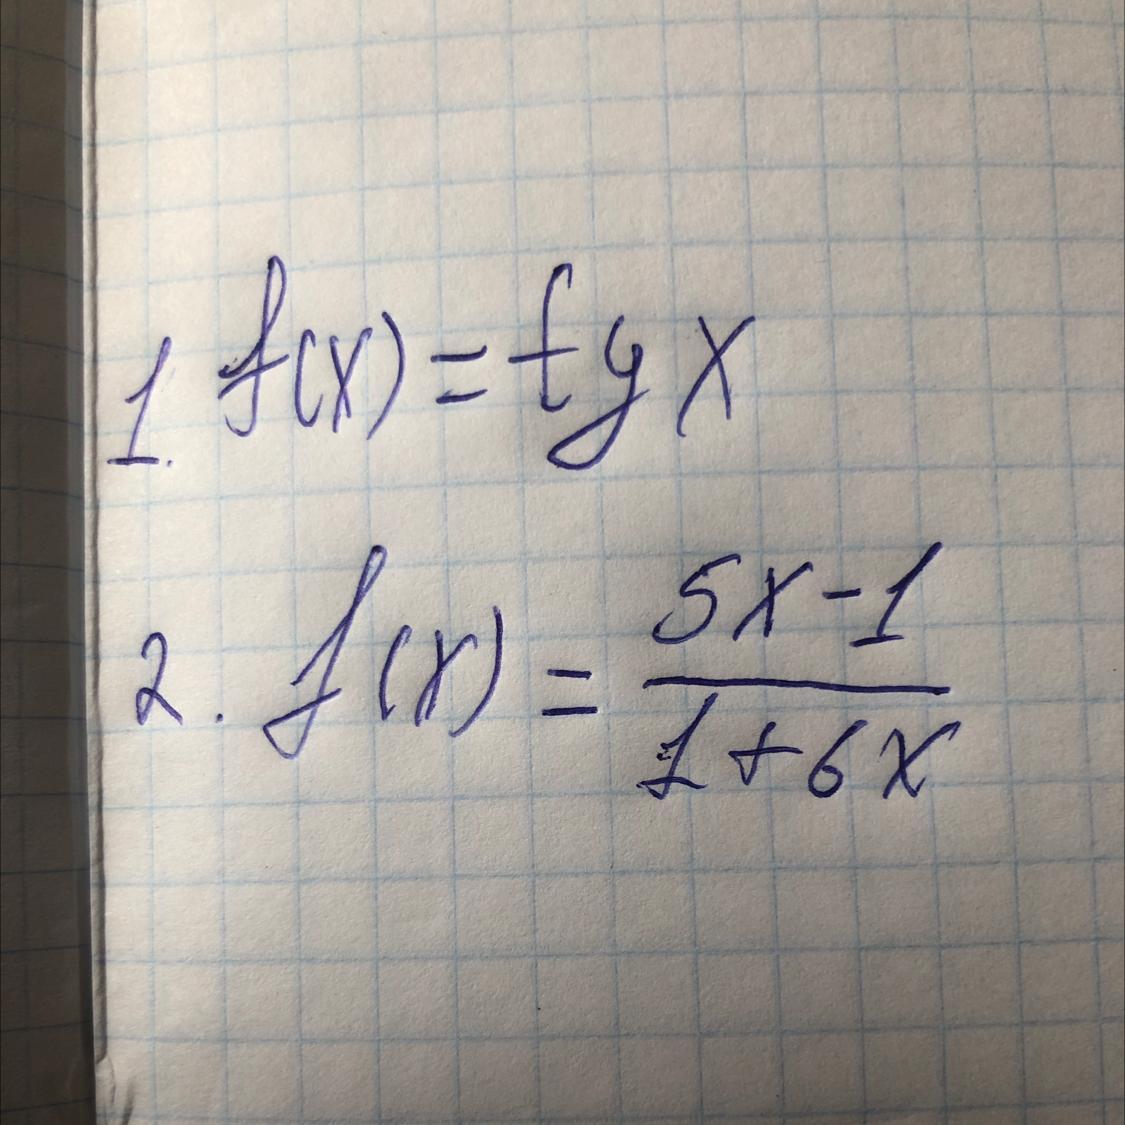 1. f(x) = tg x
2. f(x) = \frac{5x-1}{1+6x}